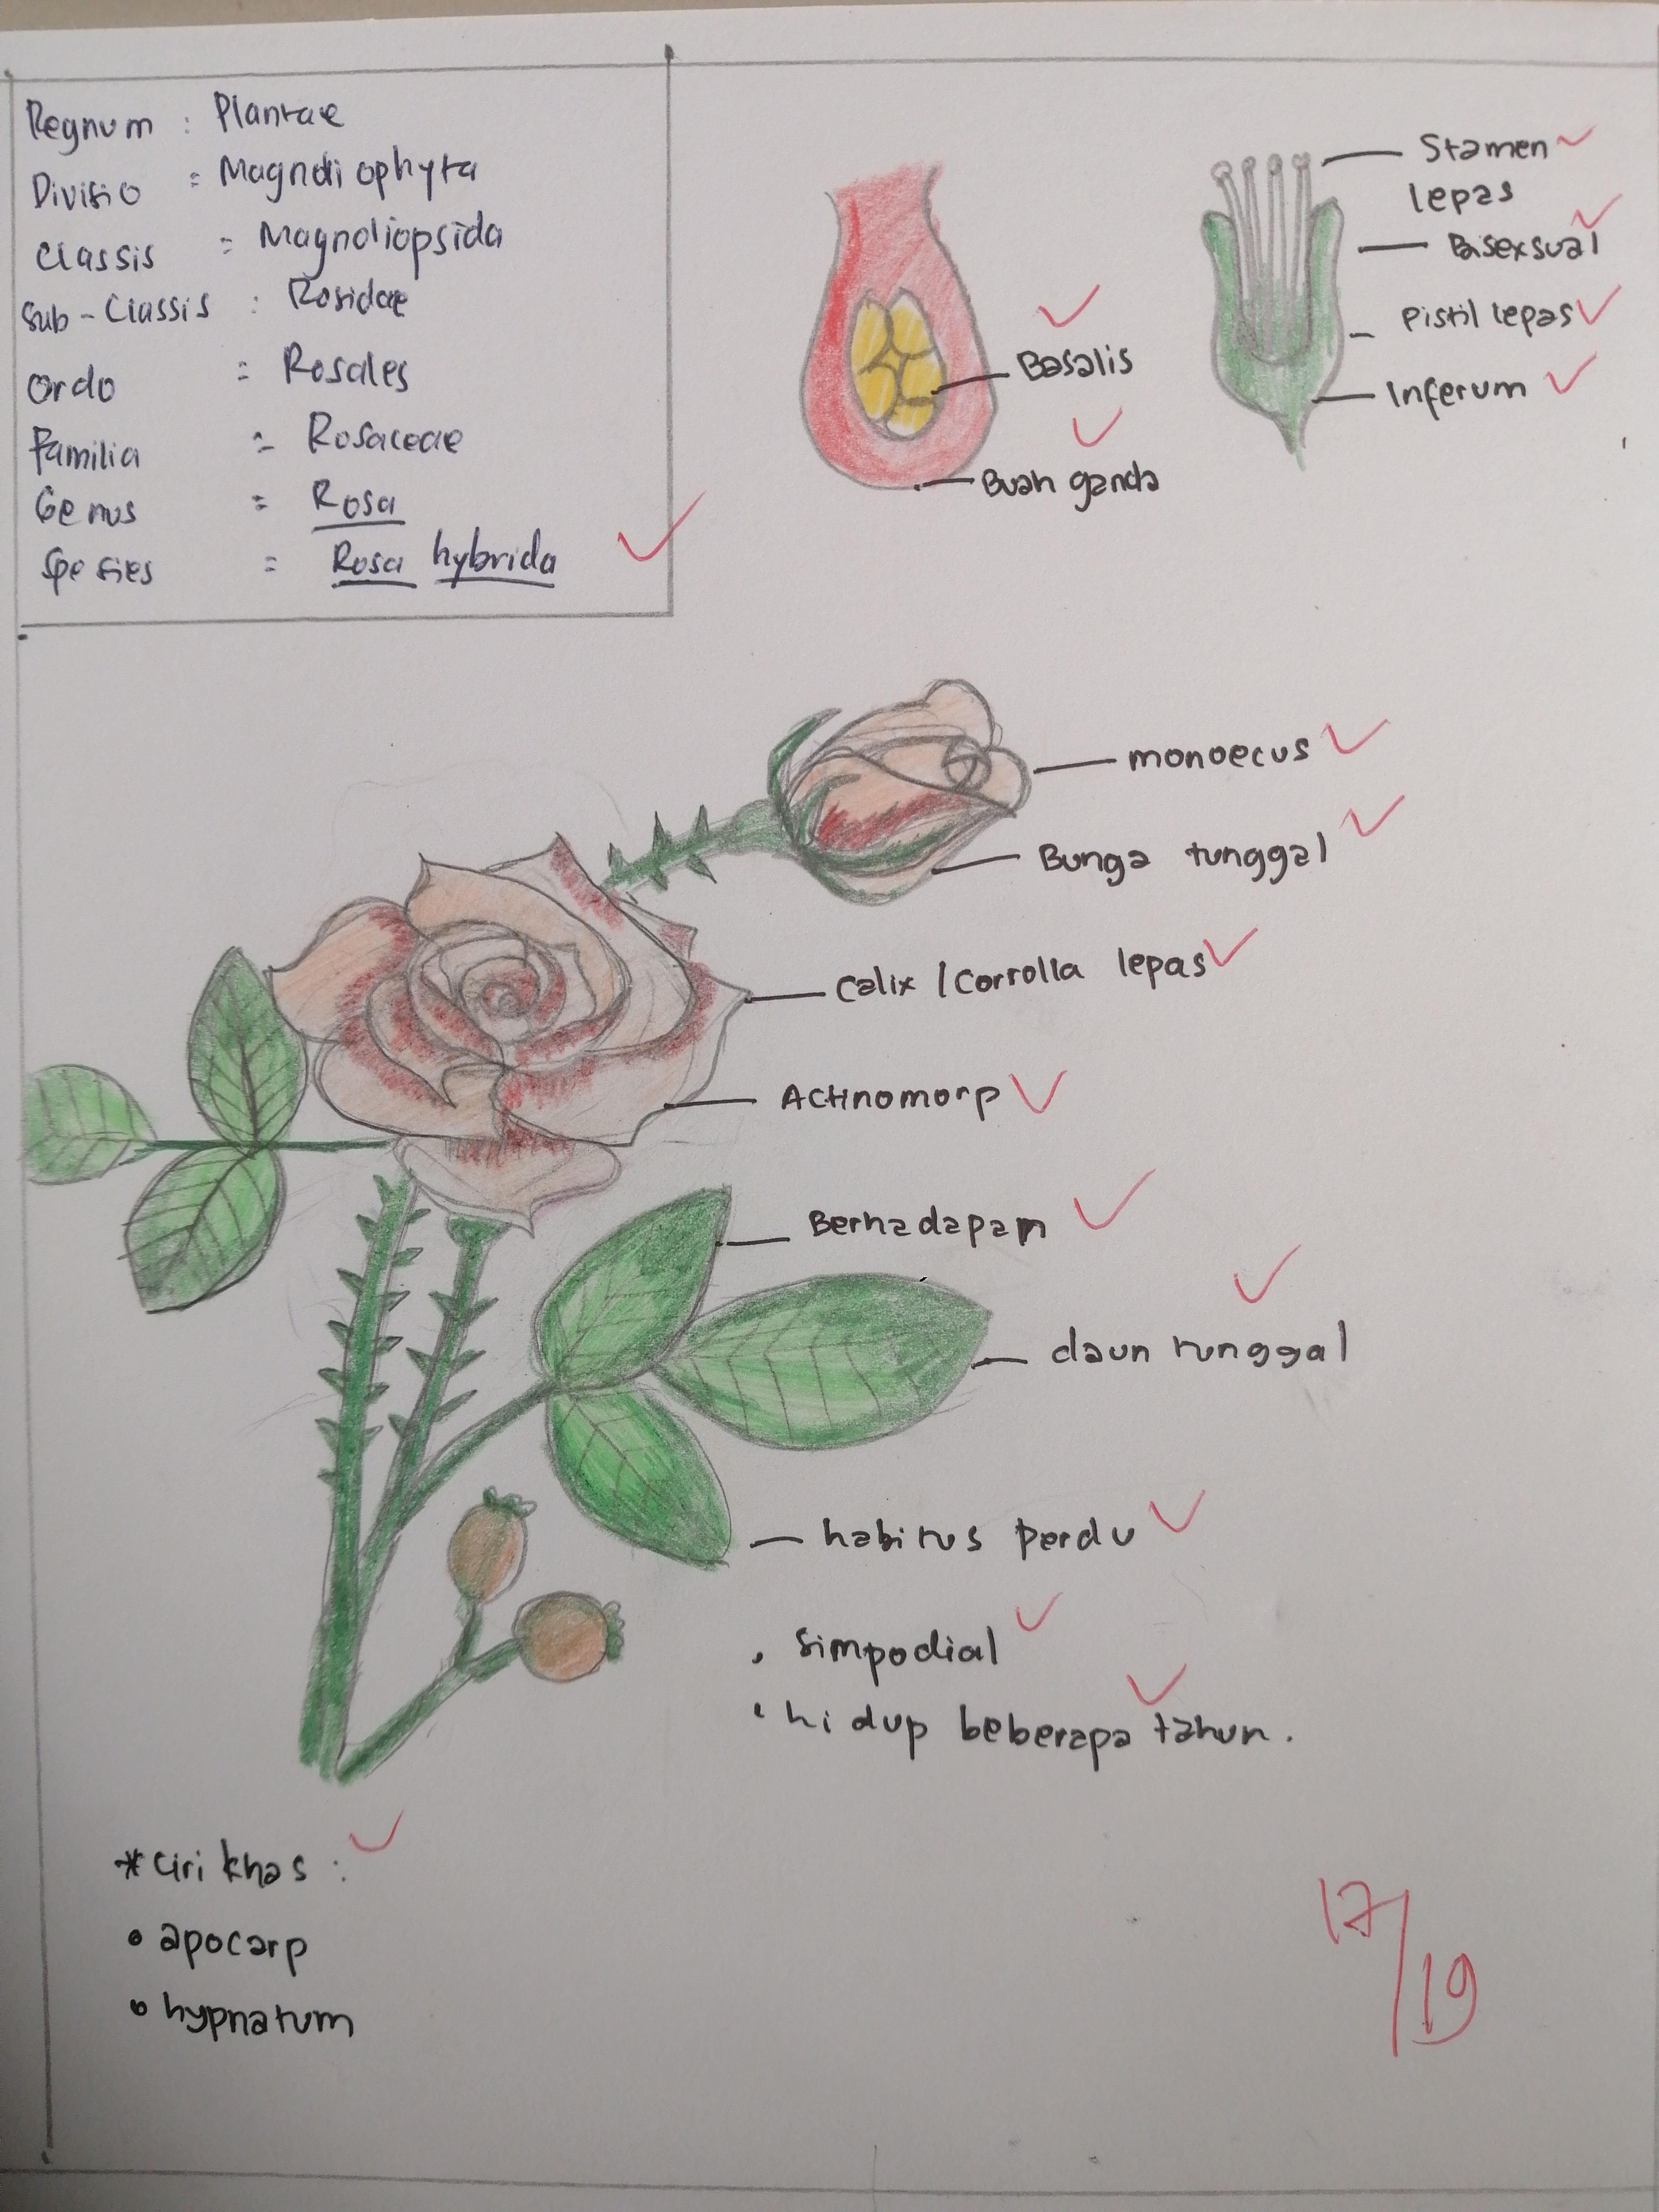 Regnum : Plantae
Divisio = Magnoliophyta
Classis = Magnoliopsida
Sub-Classis : Rosidae
Ordo = Rosales
Familia = Rosaceae
Genus = Rosa
Spesies = Rosa hybrida
Basalis
Buah ganda
Stamen
lepas
Bisexsual
Pistil lepas
Inferum
monoecus
Bunga tunggal
Calix / Corrolla lepas
Actinomorp
Berhadapan
daun tunggal
habitus perdu
simpodial
• hidup beberapa tahun.
* Ciri khas :
• apocarp
• hypnatum
17/19